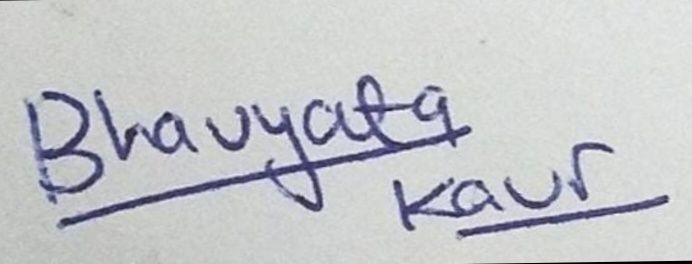 Bhavyata
Kaur